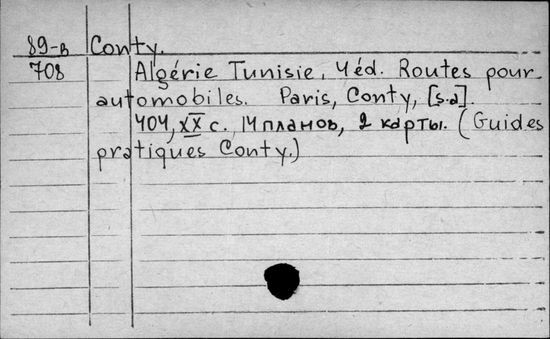 89-в Conty.
708 Algérie Tunisie, 4 éd. Routes pour
automobiles. Paris, Conty, [s.a].
404, XX с., 14 планов, 2 карты. (Guides
pratiques Conty.)